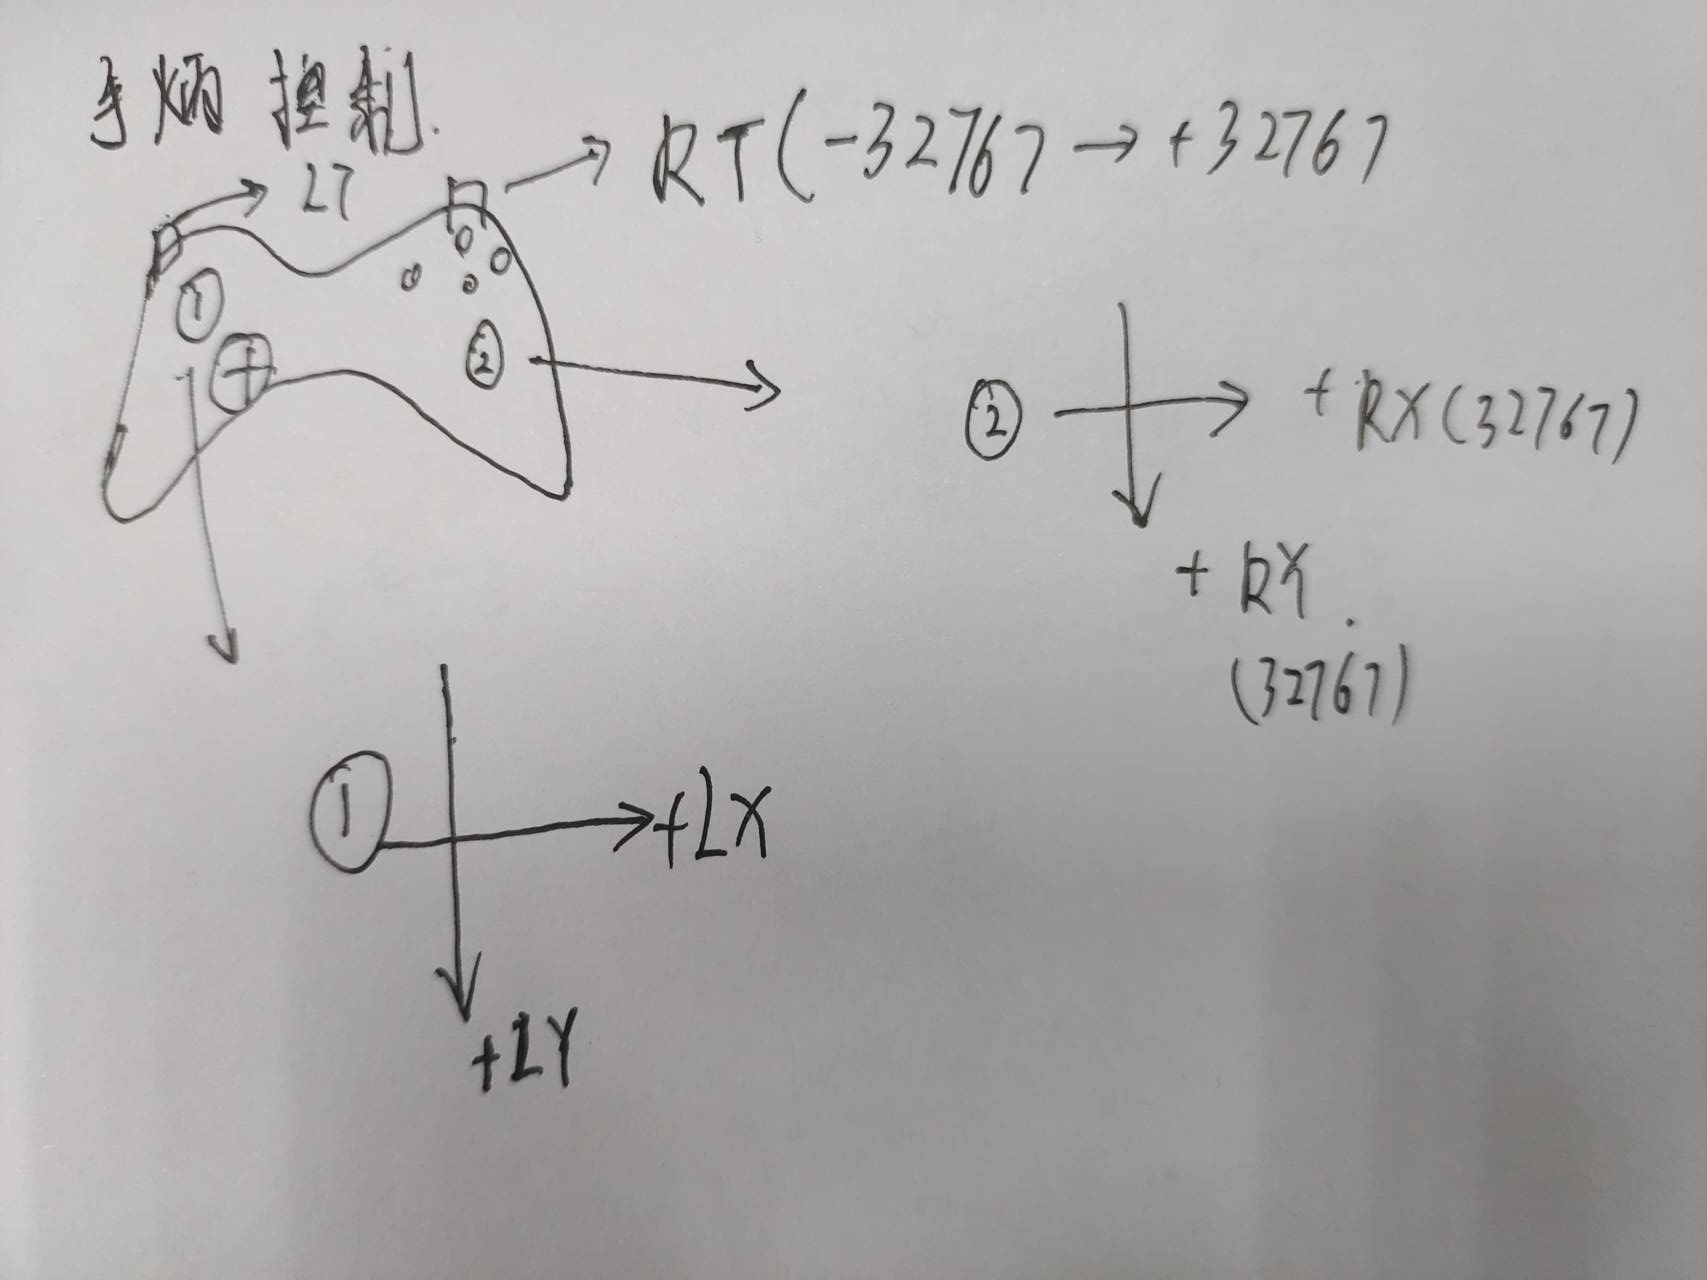 手柄 控制.
LT
RT(-32767→+32767
①
②
② +RX(32767)
+RY.
(32767)
① +LX
+LY